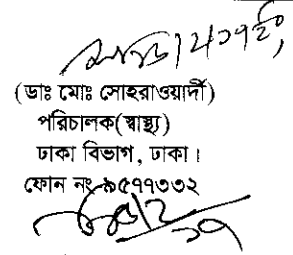 (ডাঃ মোঃ সোহরাওয়ার্দী)
পরিচালক(স্বাস্থ্য)
ঢাকা বিভাগ, ঢাকা।
ফোন নং-৯৫৭৭৩৩২